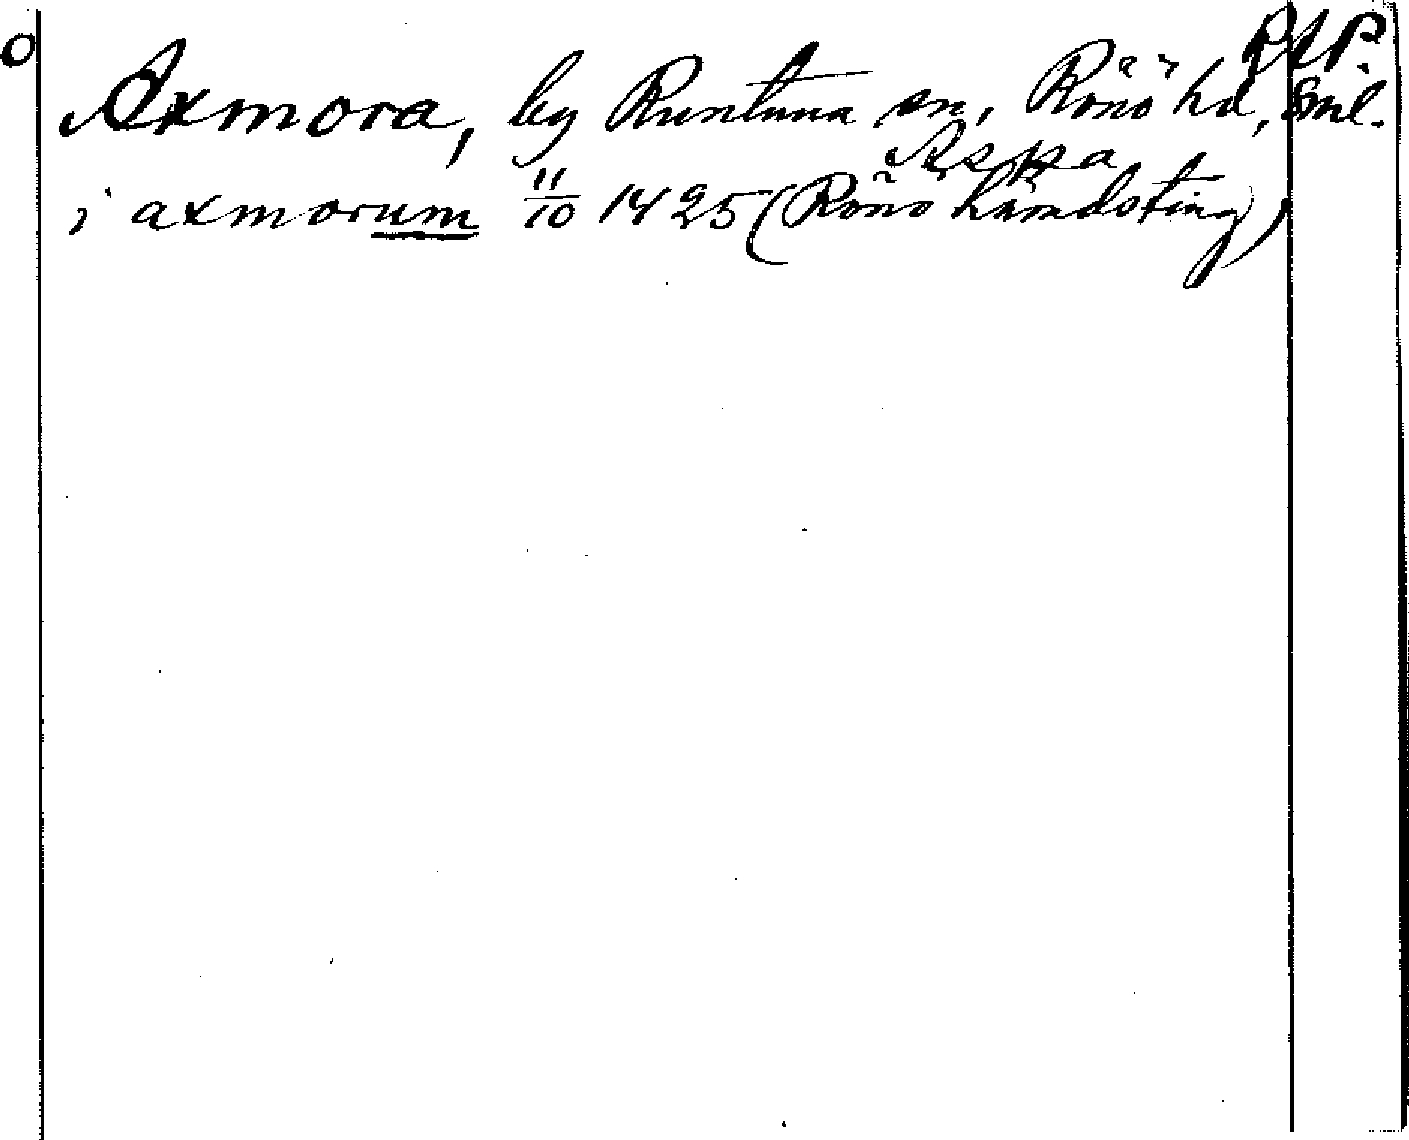 O
RAP.
Axmora, by Runtuna sn, Rönö hd, Sml.
Aspa
i axmorum 11/10 1425 (Rönö häradsting)